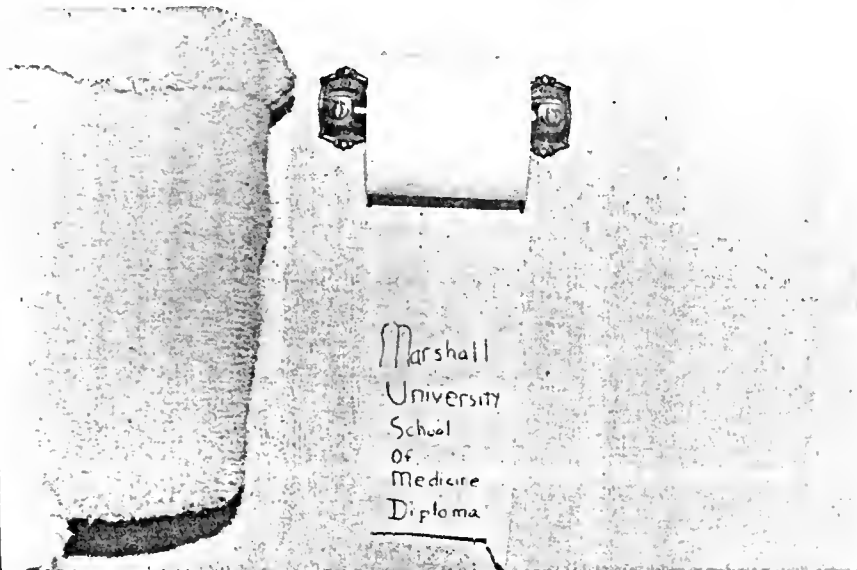 Marshall
University
School
of
Medicine
Diploma